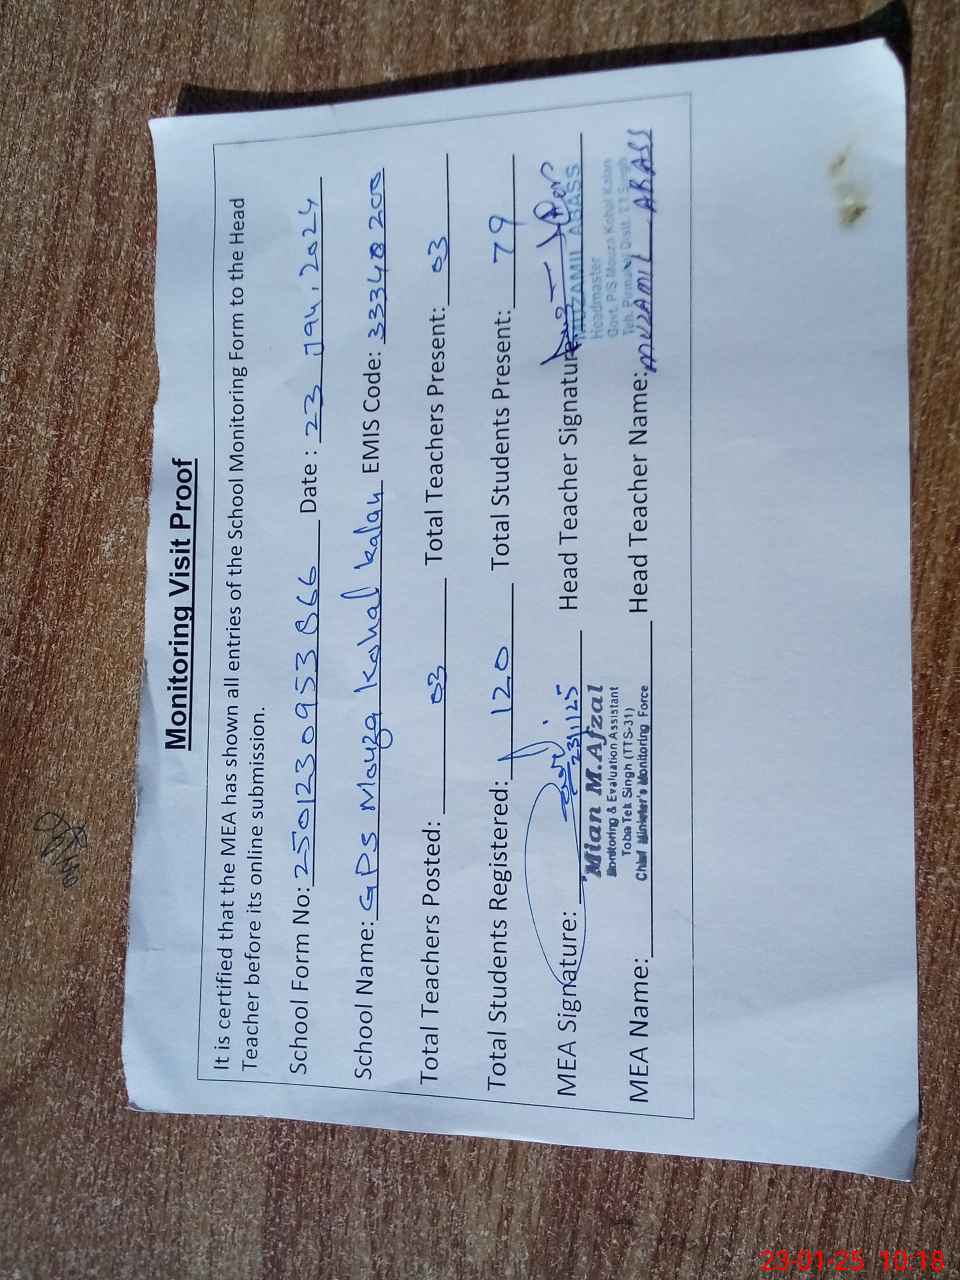 Monitoring Visit Proof
It is certified that the MEA has shown all entries of the School Monitoring Form to the Head
Teacher before its online submission.
School Form No: 2501230953866 Date : 23 Jan, 2024
School Name: GPS Mouza Kohal Kalan EMIS Code: 33340200
Total Teachers Posted: 03 Total Teachers Present: 03
Total Students Registered: 120 Total Students Present: 79
MEA Signature: 23/1/25 Head Teacher Signature:
Mian M.Afzal
Monitoring & Evaluation Assistant
Toba Tek Singh (TTS-31)
Chief Minister's Monitoring Force
MUZAMIL ABASS
Headmaster
Govt. P/S Mouza Kohal Kalan
Teh. Pirmahal Distt. TT Singh
MEA Name: Head Teacher Name: MUZAMIL ABASS
23-01-25 10:18